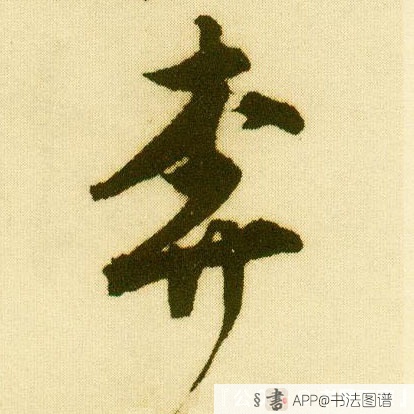 奔
§ 書 APP@书法图谱